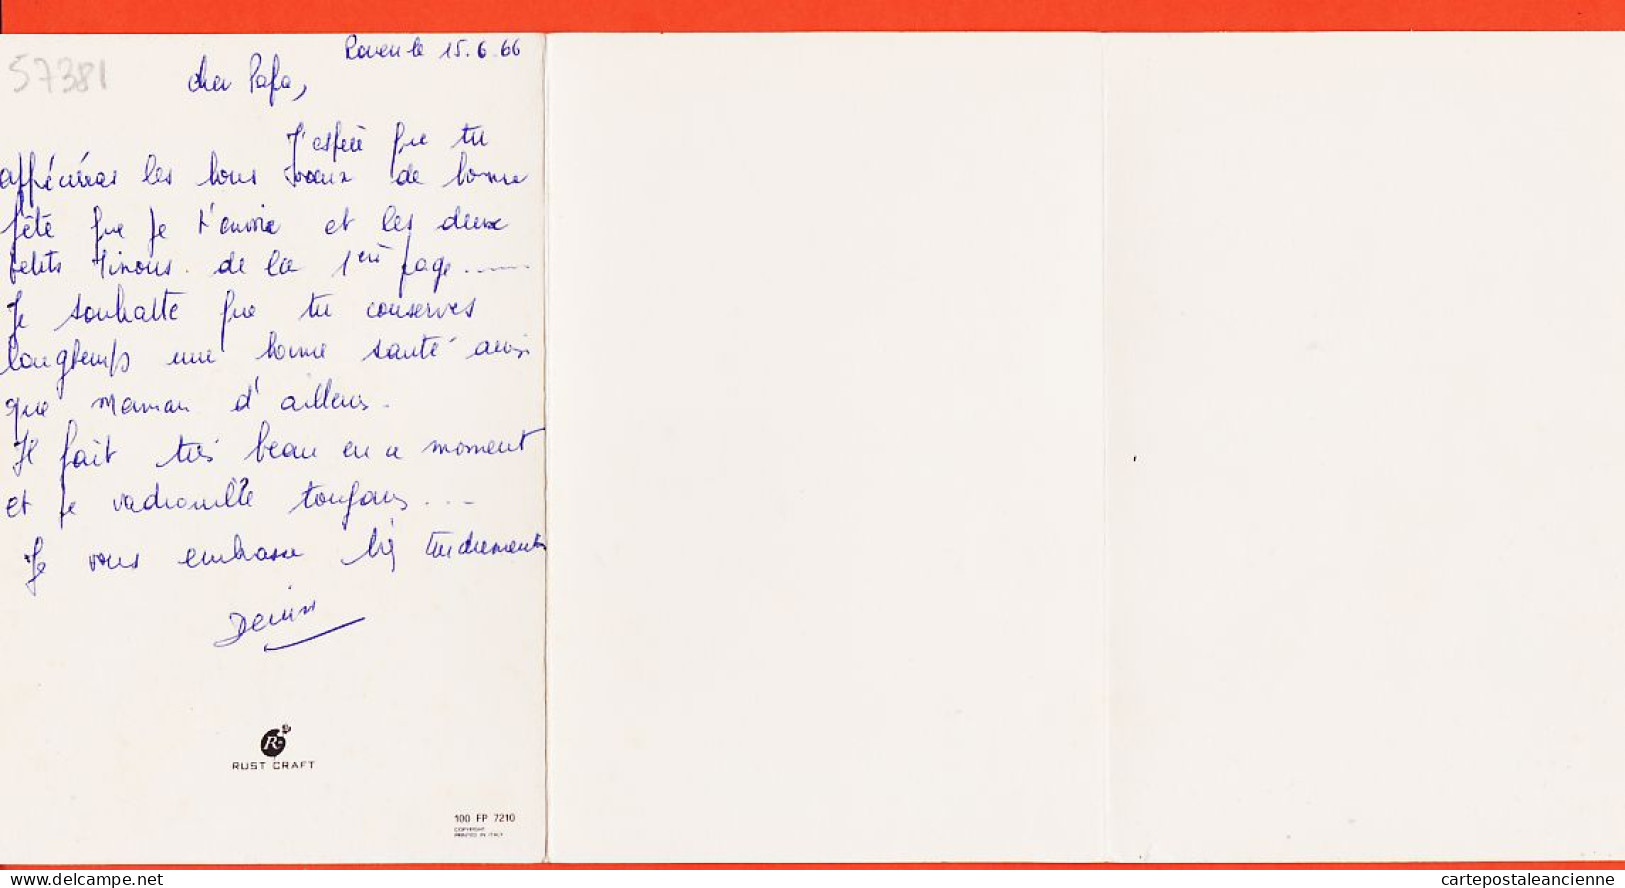 57381
Rouen le 15.6.66
cher Papa,
J'espère que tu
apprécieras les bons voeux de bonne
fête que je t'envoie et les deux
petits minous de la 1ère page......
Je souhaite que tu conserves
longtemps une bonne santé ainsi
que maman d'ailleurs.
Il fait très beau en ce moment
et je vadrouille toujours...
Je vous embrasse très tendrement
R
RUST CRAFT
100 FP 7210
COPYRIGHT
PRINTED IN ITALY
www.delcampe.net
cartepostaleancienne